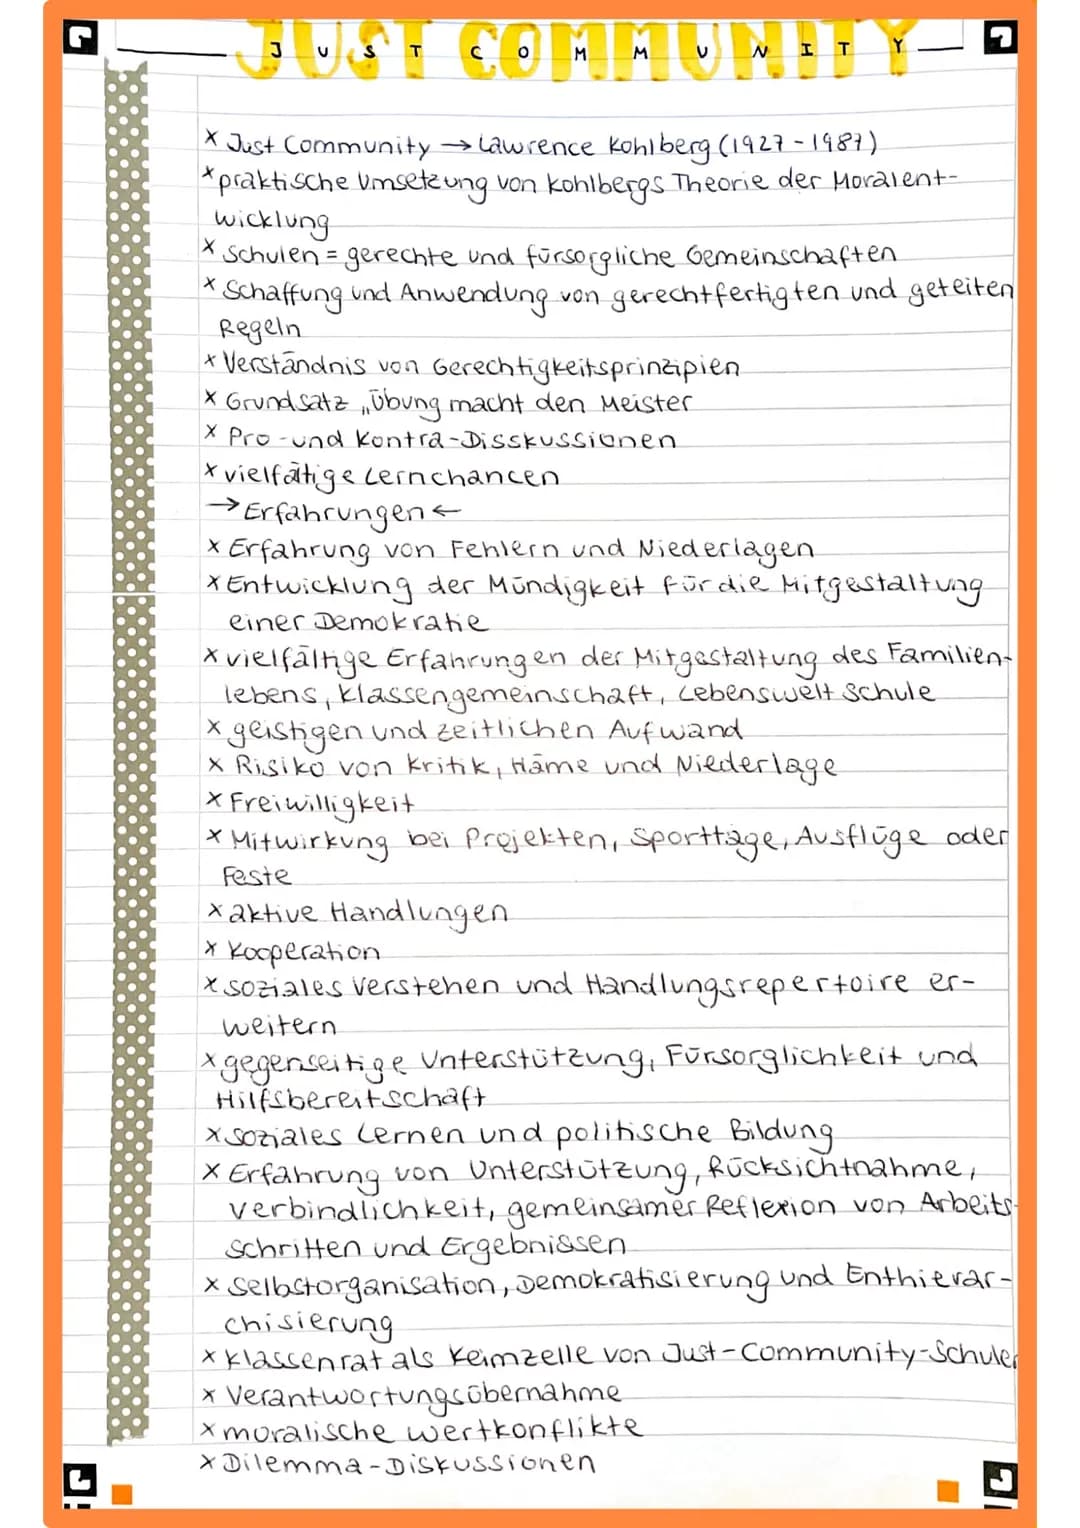 JUST COMMUNITY
x Just Community → Lawrence Kohlberg (1927-1987)
x praktische Umsetzung von Kohlbergs Theorie der Moralent-
wicklung
x Schulen = gerechte und fürsorgliche Gemeinschaften
x Schaffung und Anwendung von gerechtfertigten und geteiten
Regeln
x Verständnis von Gerechtigkeitsprinzipien
x Grundsatz „Übung macht den Meister
x Pro-und Kontra-Disskussionen
x vielfätige Lernchancen
→ Erfahrungen ←
x Erfahrung von Fehlern und Niederlagen
x Entwicklung der Mündigkeit für die Mitgestaltung
einer Demokratie
x vielfältige Erfahrungen der Mitgestaltung des Familien-
lebens, Klassengemeinschaft, Lebenswelt Schule
x geistigen und zeitlichen Aufwand
x Risiko von Kritik, Häme und Niederlage
x Freiwilligkeit
x Mitwirkung bei Projekten, Sporttage, Ausflüge oder
Feste
x aktive Handlungen
x Kooperation
x soziales Verstehen und Handlungsrepertoire er-
weitern
x gegenseitige Unterstützung, Fürsorglichkeit und
Hilfsbereitschaft
x soziales Lernen und politische Bildung
x Erfahrung von Unterstützung, Rücksichtnahme,
Verbindlichkeit, gemeinsamer Reflexion von Arbeits-
schritten und Ergebnissen
x Selbstorganisation, Demokratisierung und Enthierar-
chisierung
x Klassenrat als Keimzelle von Just-Community-Schulen
x Verantwortungsübernahme
x moralische Wertkonflikte
x Dilemma-Diskussionen